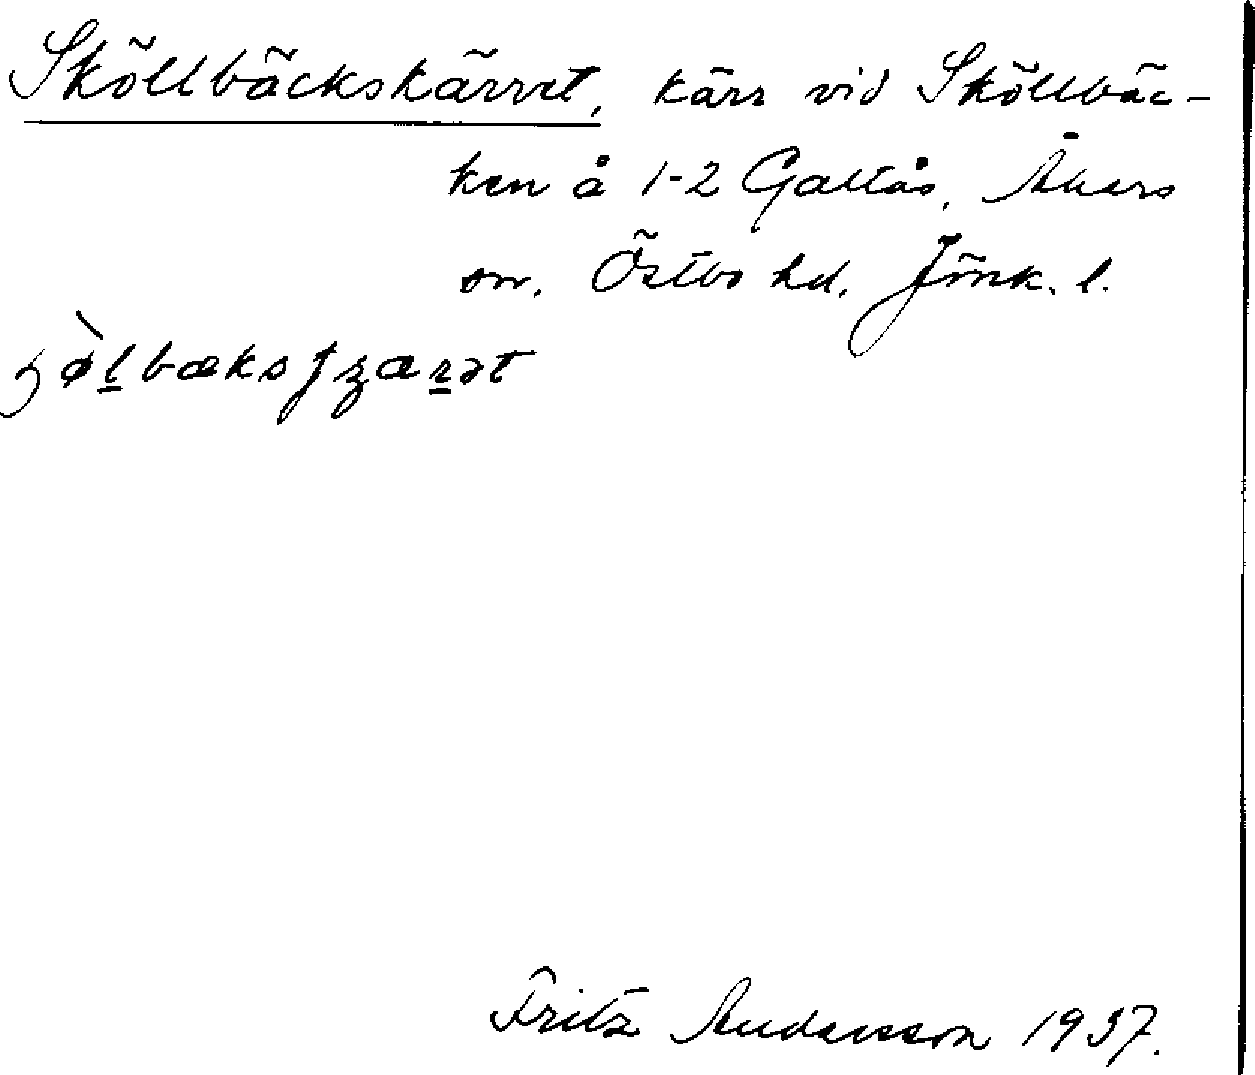 Sköllbäckskärret, kärr vid Sköllbäc-
ken å 1-2 Galtås, Åkers
sn. Östbo hd. Jönk. l.
Fritz Andersson 1937.